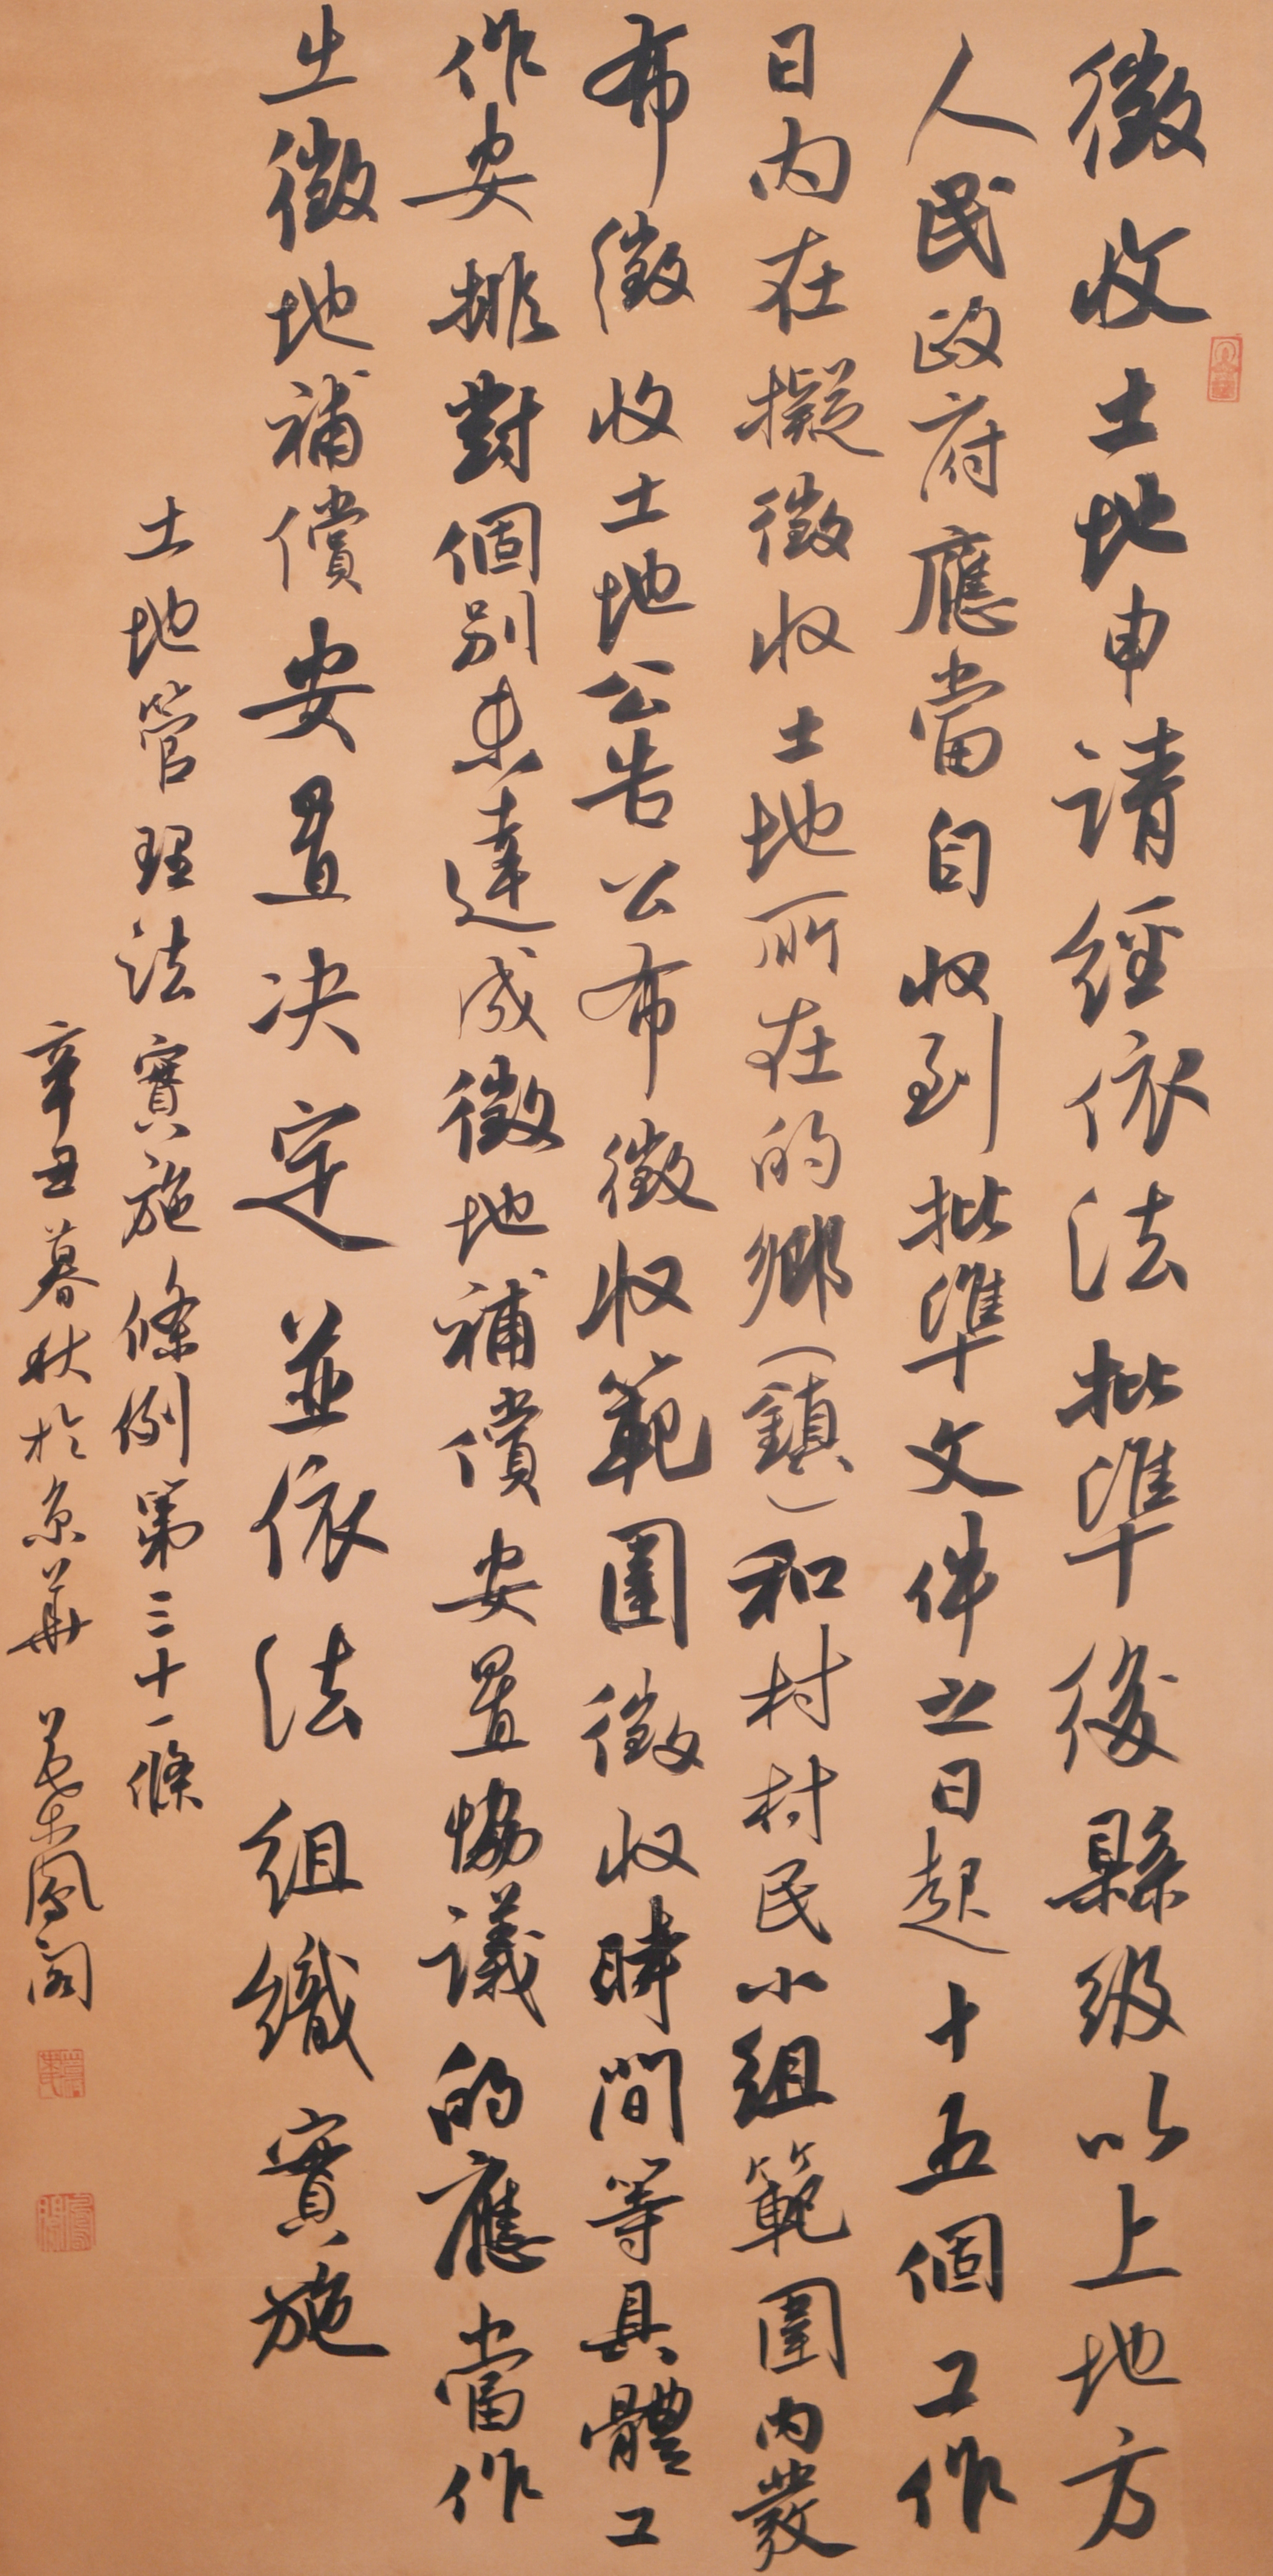 徵收土地申請經依法批準後縣級以上地方
人民政府應當自收到批準文件之日起十五個工作
日内在擬徵收土地所在的鄉（鎮）和村村民小組範圍内發
布徵收土地公告公布徵收範圍徵收時間等具體工
作安排對個别未達成徵地補償安置協議的應當作
出徵地補償安置决定並依法組織實施
土地管理法實施條例第三十一條
辛丑暮秋於京華 鳳閣